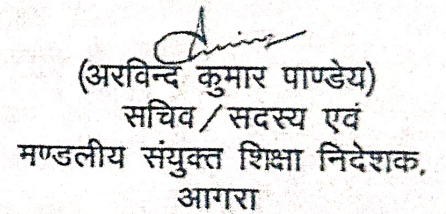 (अरविन्द कुमार पाण्डेय)
सचिव / सदस्य एवं
मण्डलीय संयुक्त शिक्षा निदेशक,
आगरा